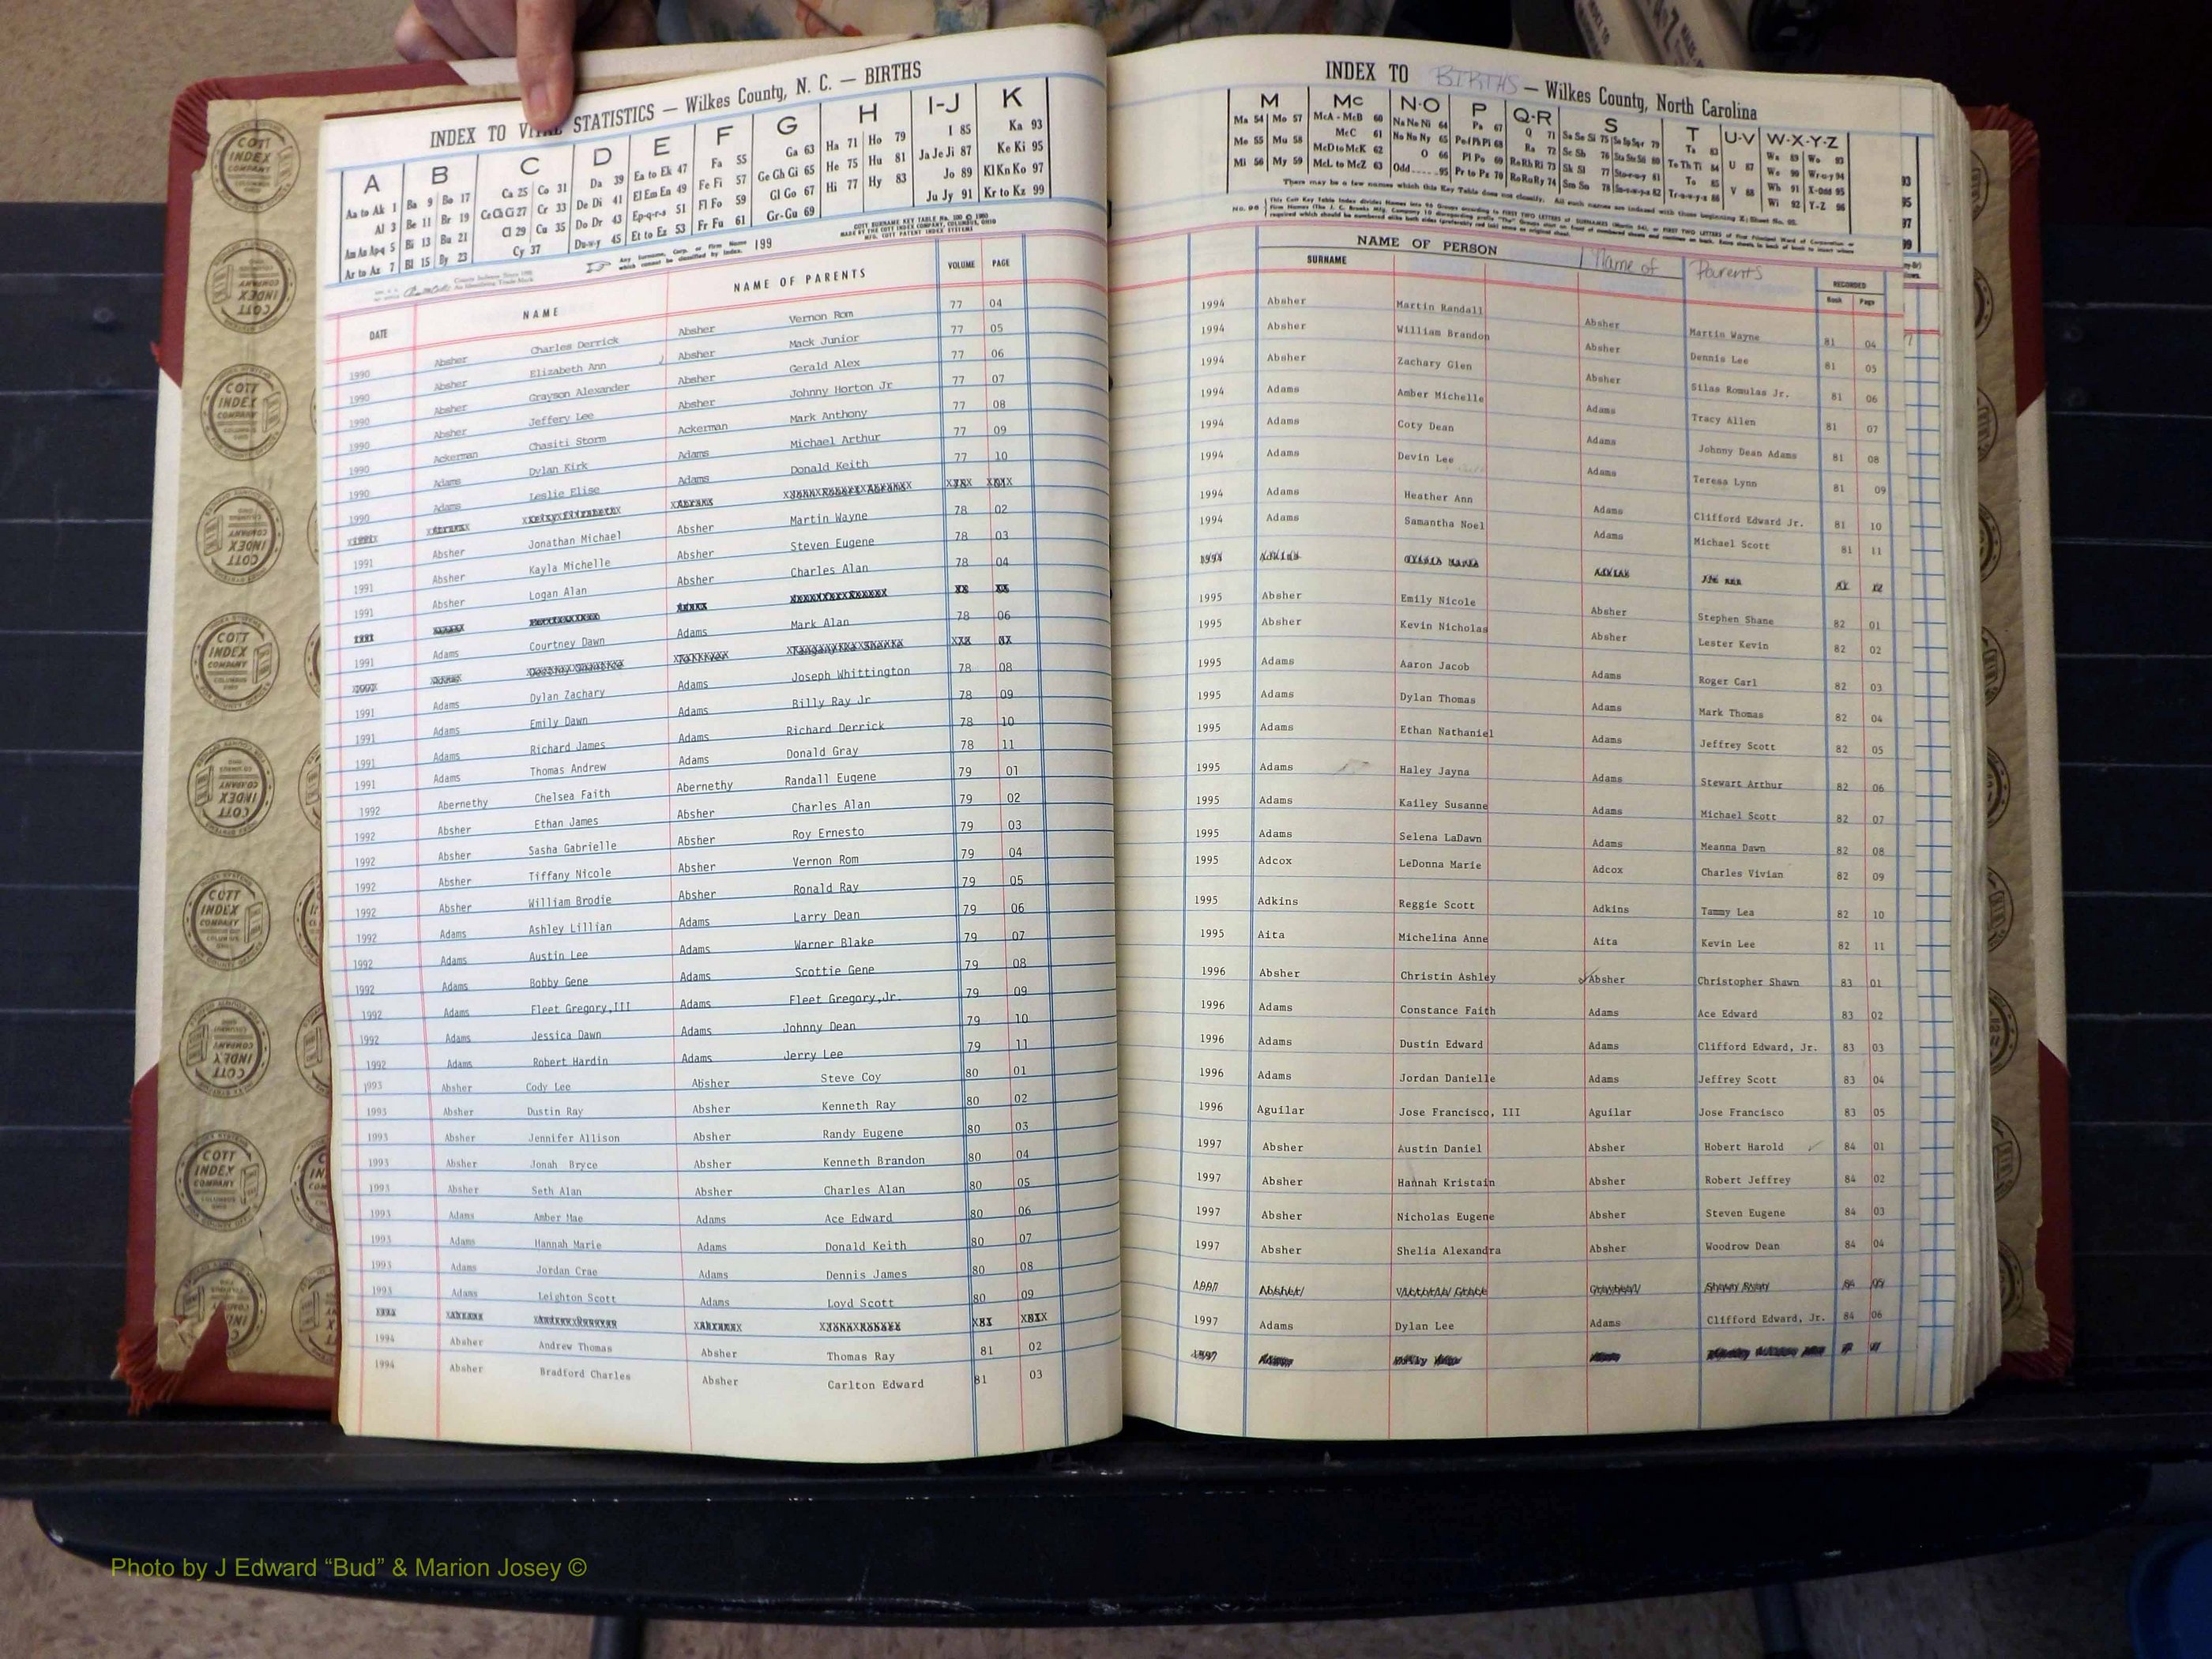 INDEX TO VITAL STATISTICS — Wilkes County, N. C. — BIRTHS
A B C D E F G H I-J K
Aa to Ak 1 Ba 9 Bo 17 Ca 25 Co 31 Da 39 Ea to Ek 47 Fa 55 Ga 63 Ha 71 Ho 79 I 85 Ka 93
Al 3 Be 11 Br 19 Ce Ch Ci 27 Cr 33 De Di 41 El Em En 49 Fe Fi 57 Ge Gh Gi 65 He 75 Hu 81 Ja Je Ji 87 Ke Ki 95
Am An Ap-q 5 Bi 13 Bu 21 Cl 29 Cu 35 Do Dr 43 Ep-q-r-s 51 Fl Fo 59 Gl Go 67 Hi 77 Hy 83 Jo 89 Kl Kn Ko 97
Ar to Az 7 Bl 15 By 23 Cy 37 Du-w-y 45 Et to Ez 53 Fr Fu 61 Gr-Gu 69 Ju Jy 91 Kr to Kz 99
Any Surname, Corp. or Firm Name which cannot be classified by Index. 199
DATE NAME NAME OF PARENTS VOLUME PAGE
1990 Absher Charles Derrick Absher Vernon Rom 77 04
1990 Absher Elizabeth Ann Absher Mack Junior 77 05
1990 Absher Grayson Alexander Absher Gerald Alex 77 06
1990 Absher Jeffery Lee Absher Johnny Horton Jr 77 07
1990 Ackerman Chasiti Storm Ackerman Mark Anthony 77 08
1990 Adams Dylan Kirk Adams Michael Arthur 77 09
1990 Adams Leslie Elise Adams Donald Keith 77 10
1991 Absher Jonathan Michael Absher Martin Wayne 78 02
1991 Absher Kayla Michelle Absher Steven Eugene 78 03
1991 Absher Logan Alan Absher Charles Alan 78 04
1991 Adams Courtney Dawn Adams Mark Alan 78 06
1991 Adams Dylan Zachary Adams Joseph Whittington 78 08
1991 Adams Emily Dawn Adams Billy Ray Jr 78 09
1991 Adams Richard James Adams Richard Derrick 78 10
1991 Adams Thomas Andrew Adams Donald Gray 78 11
1992 Abernethy Chelsea Faith Abernethy Randall Eugene 79 01
1992 Absher Ethan James Absher Charles Alan 79 02
1992 Absher Sasha Gabrielle Absher Roy Ernesto 79 03
1992 Absher Tiffany Nicole Absher Vernon Rom 79 04
1992 Absher William Brodie Absher Ronald Ray 79 05
1992 Adams Ashley Lillian Adams Larry Dean 79 06
1992 Adams Austin Lee Adams Warner Blake 79 07
1992 Adams Bobby Gene Adams Scottie Gene 79 08
1992 Adams Fleet Gregory,III Adams Fleet Gregory,Jr. 79 09
1992 Adams Jessica Dawn Adams Johnny Dean 79 10
1992 Adams Robert Hardin Adams Jerry Lee 79 11
1993 Absher Cody Lee Absher Steve Coy 80 01
1993 Absher Dustin Ray Absher Kenneth Ray 80 02
1993 Absher Jennifer Allison Absher Randy Eugene 80 03
1993 Absher Jonah Bryce Absher Kenneth Brandon 80 04
1993 Absher Seth Alan Absher Charles Alan 80 05
1993 Adams Amber Mae Adams Ace Edward 80 06
1993 Adams Hannah Marie Adams Donald Keith 80 07
1993 Adams Jordan Crae Adams Dennis James 80 08
1993 Adams Leighton Scott Adams Loyd Scott 80 09
1994 Absher Andrew Thomas Absher Thomas Ray 81 02
1994 Absher Bradford Charles Absher Carlton Edward 81 03
INDEX TO BIRTHS — Wilkes County, North Carolina
M Mc N-O P Q-R S T U-V W-X-Y-Z
Ma 54 Mo 57 McA - McB 60 Na Ne Ni 64 Pa 67 Q 71
Me 55 Mu 58 McC 61 No Nu Ny 65 Pe Pf Ph Pi 68 Ra 72
Mi 56 My 59 McD to McK 62 O 66 Pl Po 69 Re Rh Ri 73
McL to McZ 63 Odd 95 Pr to Pz 70 Ro Ru Ry 74
NAME OF PERSON Name of Parents RECORDED
SURNAME Book Page
1994 Absher Martin Randall Absher Martin Wayne 81 04
1994 Absher William Brandon Absher Dennis Lee 81 05
1994 Absher Zachary Glen Absher Silas Romulas Jr. 81 06
1994 Adams Amber Michelle Adams Tracy Allen 81 07
1994 Adams Coty Dean Adams Johnny Dean Adams 81 08
1994 Adams Devin Lee Adams Teresa Lynn 81 09
1994 Adams Heather Ann Adams Clifford Edward Jr. 81 10
1994 Adams Samantha Noel Adams Michael Scott 81 11
1995 Absher Emily Nicole Absher Stephen Shane 82 01
1995 Absher Kevin Nicholas Absher Lester Kevin 82 02
1995 Adams Aaron Jacob Adams Roger Carl 82 03
1995 Adams Dylan Thomas Adams Mark Thomas 82 04
1995 Adams Ethan Nathaniel Adams Jeffrey Scott 82 05
1995 Adams Haley Jayna Adams Stewart Arthur 82 06
1995 Adams Kailey Susanne Adams Michael Scott 82 07
1995 Adams Selena LaDawn Adams Meanna Dawn 82 08
1995 Adcox LeDonna Marie Adcox Charles Vivian 82 09
1995 Adkins Reggie Scott Adkins Tammy Lea 82 10
1995 Aita Michelina Anne Aita Kevin Lee 82 11
1996 Absher Christin Ashley Absher Christopher Shawn 83 01
1996 Adams Constance Faith Adams Ace Edward 83 02
1996 Adams Dustin Edward Adams Clifford Edward, Jr. 83 03
1996 Adams Jordan Danielle Adams Jeffrey Scott 83 04
1996 Aguilar Jose Francisco, III Aguilar Jose Francisco 83 05
1997 Absher Austin Daniel Absher Hobert Harold 84 01
1997 Absher Hannah Kristain Absher Robert Jeffrey 84 02
1997 Absher Nicholas Eugene Absher Steven Eugene 84 03
1997 Absher Shelia Alexandra Absher Woodrow Dean 84 04
1997 Adams Dylan Lee Adams Clifford Edward, Jr. 84 06
1997
Photo by J Edward “Bud” & Marion Josey ©